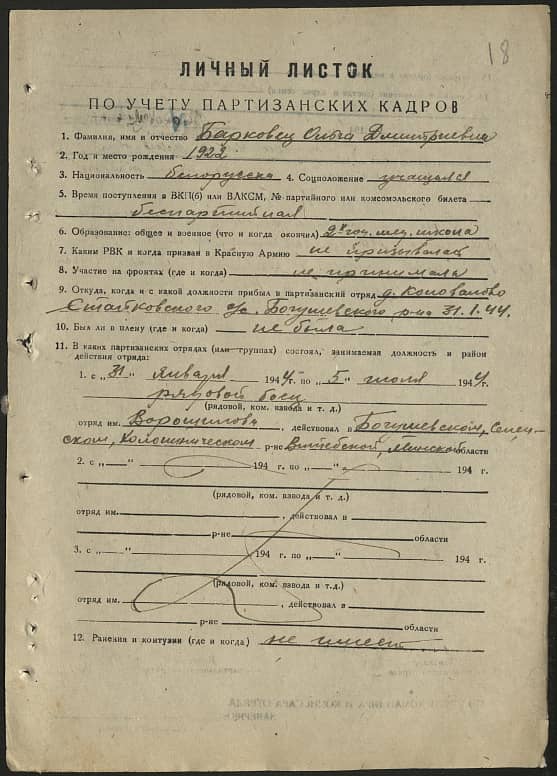 18
ЛИЧНЫЙ ЛИСТОК
ПО УЧЕТУ ПАРТИЗАНСКИХ КАДРОВ
1. Фамилия, имя и отчество Барковец Ольга Дмитриевна
2. Год и место рождения 1922
3. Национальность белорусска 4. Соцположение учащаяся
5. Время поступления в ВКП(б) или ВЛКСМ, № партийного или комсомольского билета
беспартийная
6. Образование: общее и военное (что и когда окончил) мед. школа
7. Каким РВК и когда призван в Красную Армию не призывалась
8. Участие на фронтах (где и когда) не принимала
9. Откуда, когда и с какой должности прибыл в партизанский отряд д. Коновалово
с/с. Богушевского р-на 31.1.44.
10. Был ли в плену (где и когда) не была
11. В каких партизанских отрядах (или группах) состоял, занимаемая должность и район
действия отряда:
1. с „31“ января 1944 г. по „5“ июля 1944 г.
рядовой боец
(рядовой, ком. взвода и т. д.)
отряд им. Ворошилова, действовал в Богушевском, Сенн-
ском, р-не Витебской, Минской области
2. с „ “ 194 г. по „ “ 194 г.
(рядовой, ком. взвода и т. д.)
отряд им. , действовал в
р-не области
3. с „ “ 194 г. по „ “ 194 г.
(рядовой, ком. взвода и т.д.)
отряд им. , действовал в
р-не области
12. Ранения и контузии (где и когда) не имеет